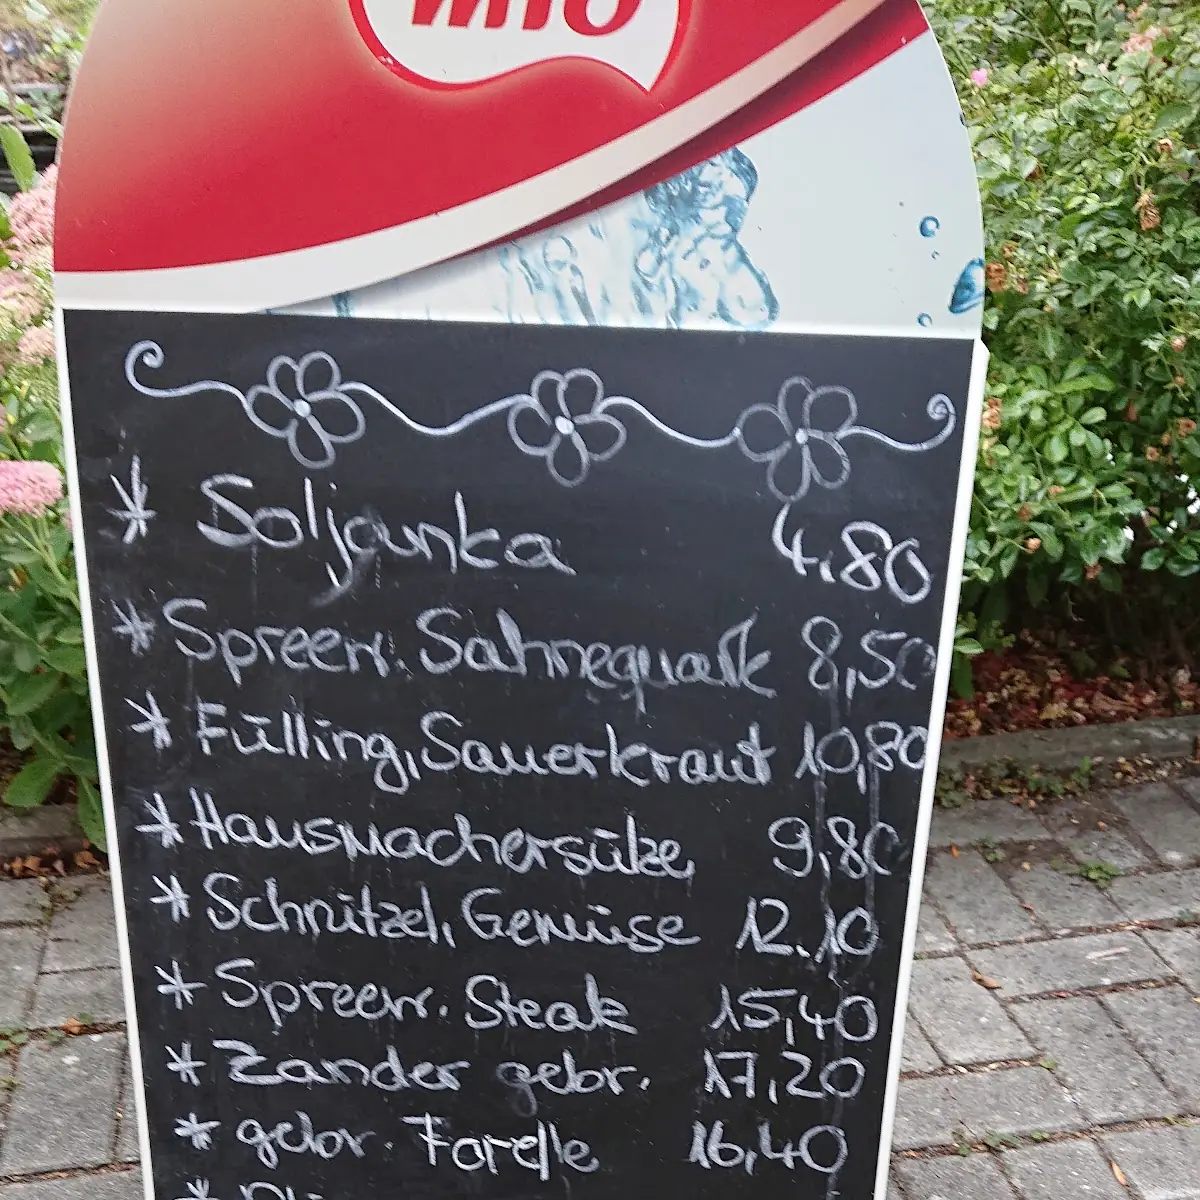 * Soljanka 4.80
* Spreew. Sahnequark 8,50
* Fülling, Sauerkraut 10,80
* Hausmachersülze, 9,80
* Schnitzel, Gemüse 12.10
* Spreew. Steak 15,40
* Zander gebr. 17,20
* gebr. Forelle 16,40